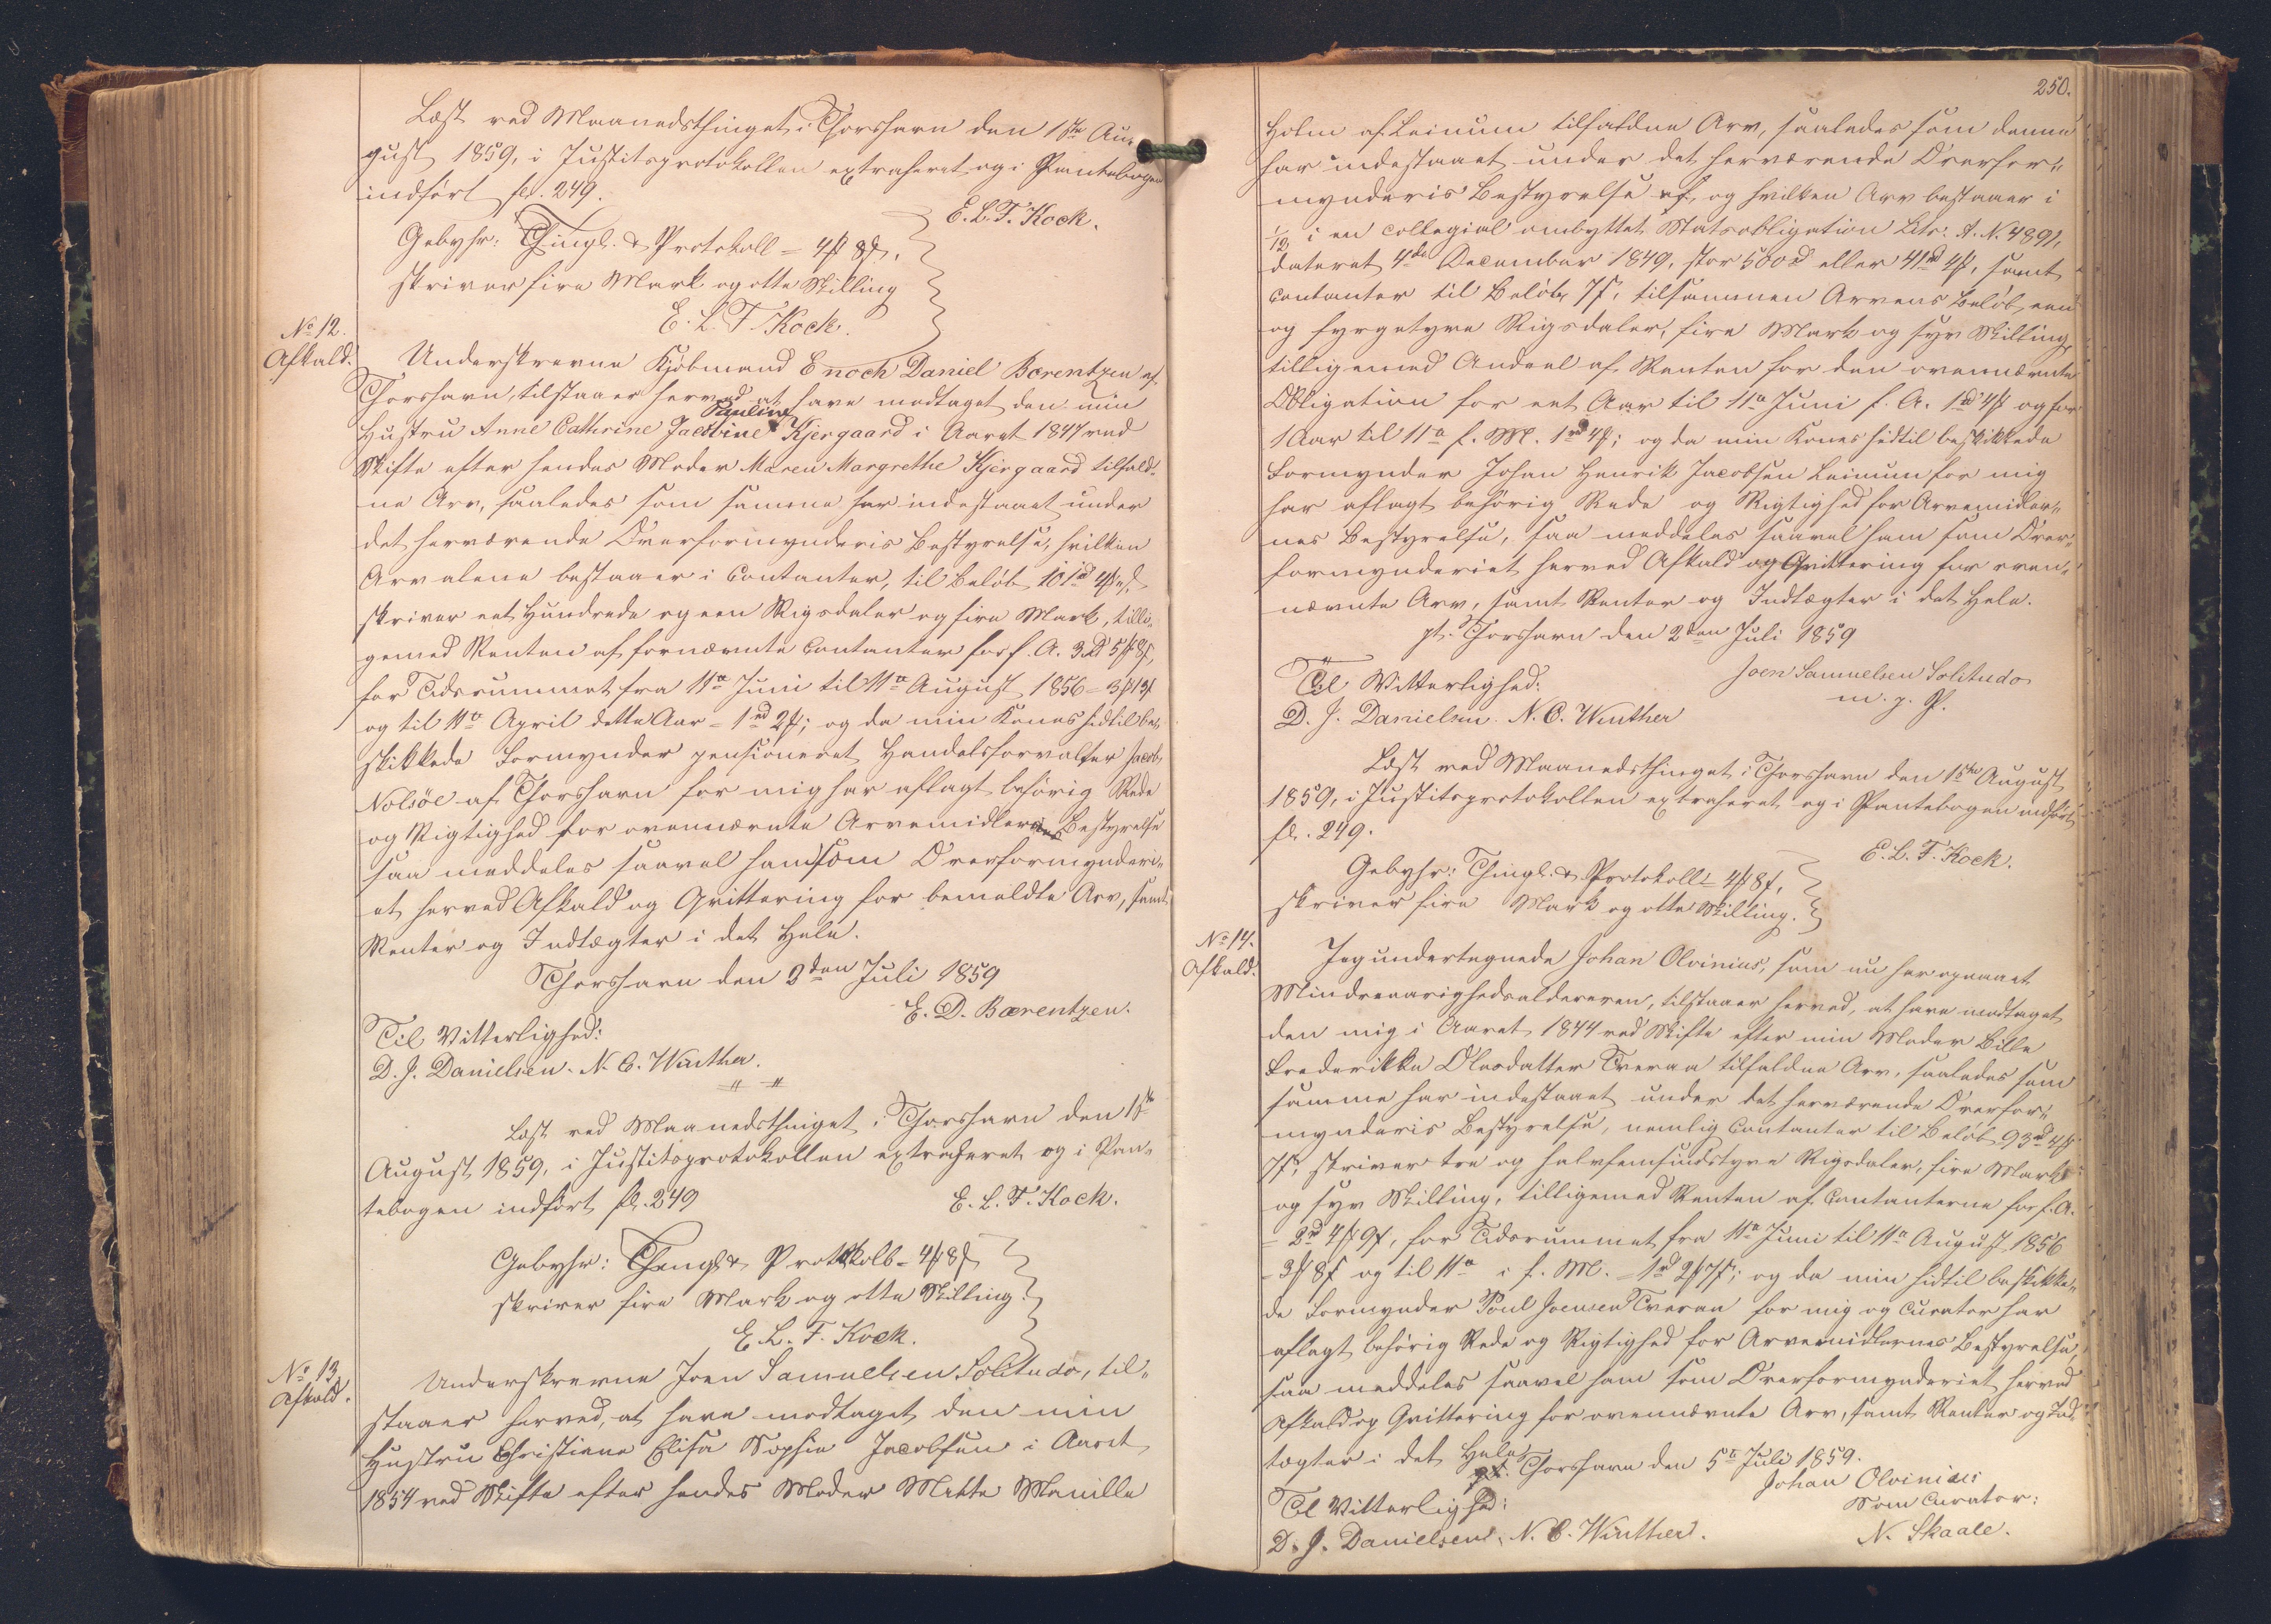 Læst ved Maanedsthinget i Thorshavn den 1ste Au-
gust 1859, i Justitsprotokollen extraheret og i Pantebogen
indført fol. 249.
E. L. T. Kock.
Gebyhr: Thingl. & Protokoll = 4 ₻ 8 ß,
skriver fire Mark og otte Skilling
E. L. T. Kock.
No 12.
Afkald.
Underskrevne Kjøbmand Enoch Daniel Bærentzen af
Thorshavn, tilstaaer herved at have modtaget den min
Pauline
Hustru Anne Cathrine Jacobine Kjergaard i Aaret 1847 ved
Skifte efter hendes Moder Maren Margrethe Kjergaard tilfald-
ne Arv, saaledes som samme har indestaaet under
det herværende Overformynderis Bestyrelse, hvilken
Arv alene bestaaer i Contanter, til Beløb 101 rd 4 ₻ " ß,
skriver eet Hundrede og een Rigsdaler og fire Mark, tilli-
gemed Renten af fornævnte Contanter for f. A. 3 rd 5 ₻ 8 ß,
for Tidsrummet fra 11te Juni til 11te August 1856 = 3 ₻ 13 ß
og til 11te April dette Aar = 1 rd 2 ₻; og da min Kones hidtil be-
skikkede Formynder pensioneret Handelsforvalter Jacob
Nolsöe af Thorshavn for mig har aflagt behørig Rede
og Rigtighed for ovennævnte Arvemidlernes Bestyrelse
saa meddeles saavel ham som Overformynderi-
et herved Afkald og Qvittering for bemeldte Arv, samt
Renter og Indtægter i det Hele.
Thorshavn den 2den Juli 1859
E. D. Bærentzen.
Til Vitterlighed:
D. J. Danielsen. N. C. Winther.
Læst ved Maanedsthinget i Thorshavn den 1ste
August 1859, i Justitsprotokollen extraheret og i Pan-
tebogen indført fol. 249
E. L. T. Kock.
Gebyhr: Thingl. & Protokoll = 4 ₻ 8 ß
skriver fire Mark og otte Skilling.
E. L. T. Kock.
No 13.
Afkald.
Underskrevne Joen Samuelsen Solitudo, til-
staaer herved, at have modtaget den min
Hustru Christiane Elisa Sophie Jacobsen i Aaret
1854 ved Skifte efter hendes Moder Mette Manille
250.
Holm af Leinum tilfaldne Arv, saaledes som denne
har indestaaet under det herværende Overfor-
mynderis Bestyrelse af, og hvilken Arv bestaaer i
1/12 i en collegial ombyttet Statsobligation Litr. A. N. 4891,
dateret 4de December 1849, stor 500 rd eller 41 rd 4 ₻, samt
Contanter til Beløb 7 ß, tilsammen Arvens Beløb, een
og fyrgetyve Rigsdaler, fire Mark og syv Skilling,
tilligemed Andeel af Renten for den ovennævnte
Obligation for eet Aar til 11te Juni f. A. 1 rd 4 ₻ og for
1 Aar til 11te f. M. 1 rd 4 ₻; og da min Kones hidtil beskikkede
Formynder Johan Henrik Jacobsen Leinum for mig
har aflagt behørig Rede og Rigtighed for Arvemidler-
nes Bestyrelse, saa meddeles saavel ham som Over-
formynderiet herved Afkald og Qvittering for oven-
nævnte Arv, samt Renter og Indtægter i det Hele.
pt. Thorshavn den 2den Juli 1859
Joen Samuelsen Solitudo
m. p. P.
Til Vitterlighed:
D. J. Danielsen. N. C. Winther
Læst ved Maanedsthinget i Thorshavn den 1ste August
1859, i Justitsprotokollen extraheret og i Pantebogen indført
fol. 249.
E. L. T. Kock.
Gebyhr: Thingl. & Protokoll = 4 ₻ 8 ß,
skriver fire Mark og otte Skilling.
No 14.
Afkald.
Jeg undertegnede Johan Olvinius, som nu har opnaaet
Mindreaarighedsalderen, tilstaaer herved, at have modtaget
den mig i Aaret 1844 ved Skifte efter min Moder Bille
Frederikke Olesdatter Tveraa tilfaldne Arv, saaledes som
samme har indestaaet under det herværende Overfor-
mynderis Bestyrelse, nemlig Contanter til Beløb 93 rd 4 ₻
7 ß, skriver tre og halvfemsindstyve Rigsdaler, fire Mark
og syv Skilling, tilligemed Renten af Contanterne for f. A.
= 2 rd 4 ₻ 9 ß, for Tidsrummet fra 11te Juni til 11te August 1856
= 3 ₻ 8 ß og til 11te i f. M. = 1 rd 2 ₻ 7 ß; og da min hidtil beskikke-
de Formynder Poul Joensen Tveraa for mig og Curator har
aflagt behørig Rede og Rigtighed for Arvemidlernes Bestyrelse,
saa meddeles saavel ham som Overformynderiet herved
Afkald og Qvittering for ovennævnte Arv, samt Renter og Ind-
tægter i det Hele.
pt. Thorshavn den 5te Juli 1859.
Johan Olvinius
Til Vitterlighed:
Som Curator:
D. J. Danielsen. N. C. Winther.
N. Skaale.